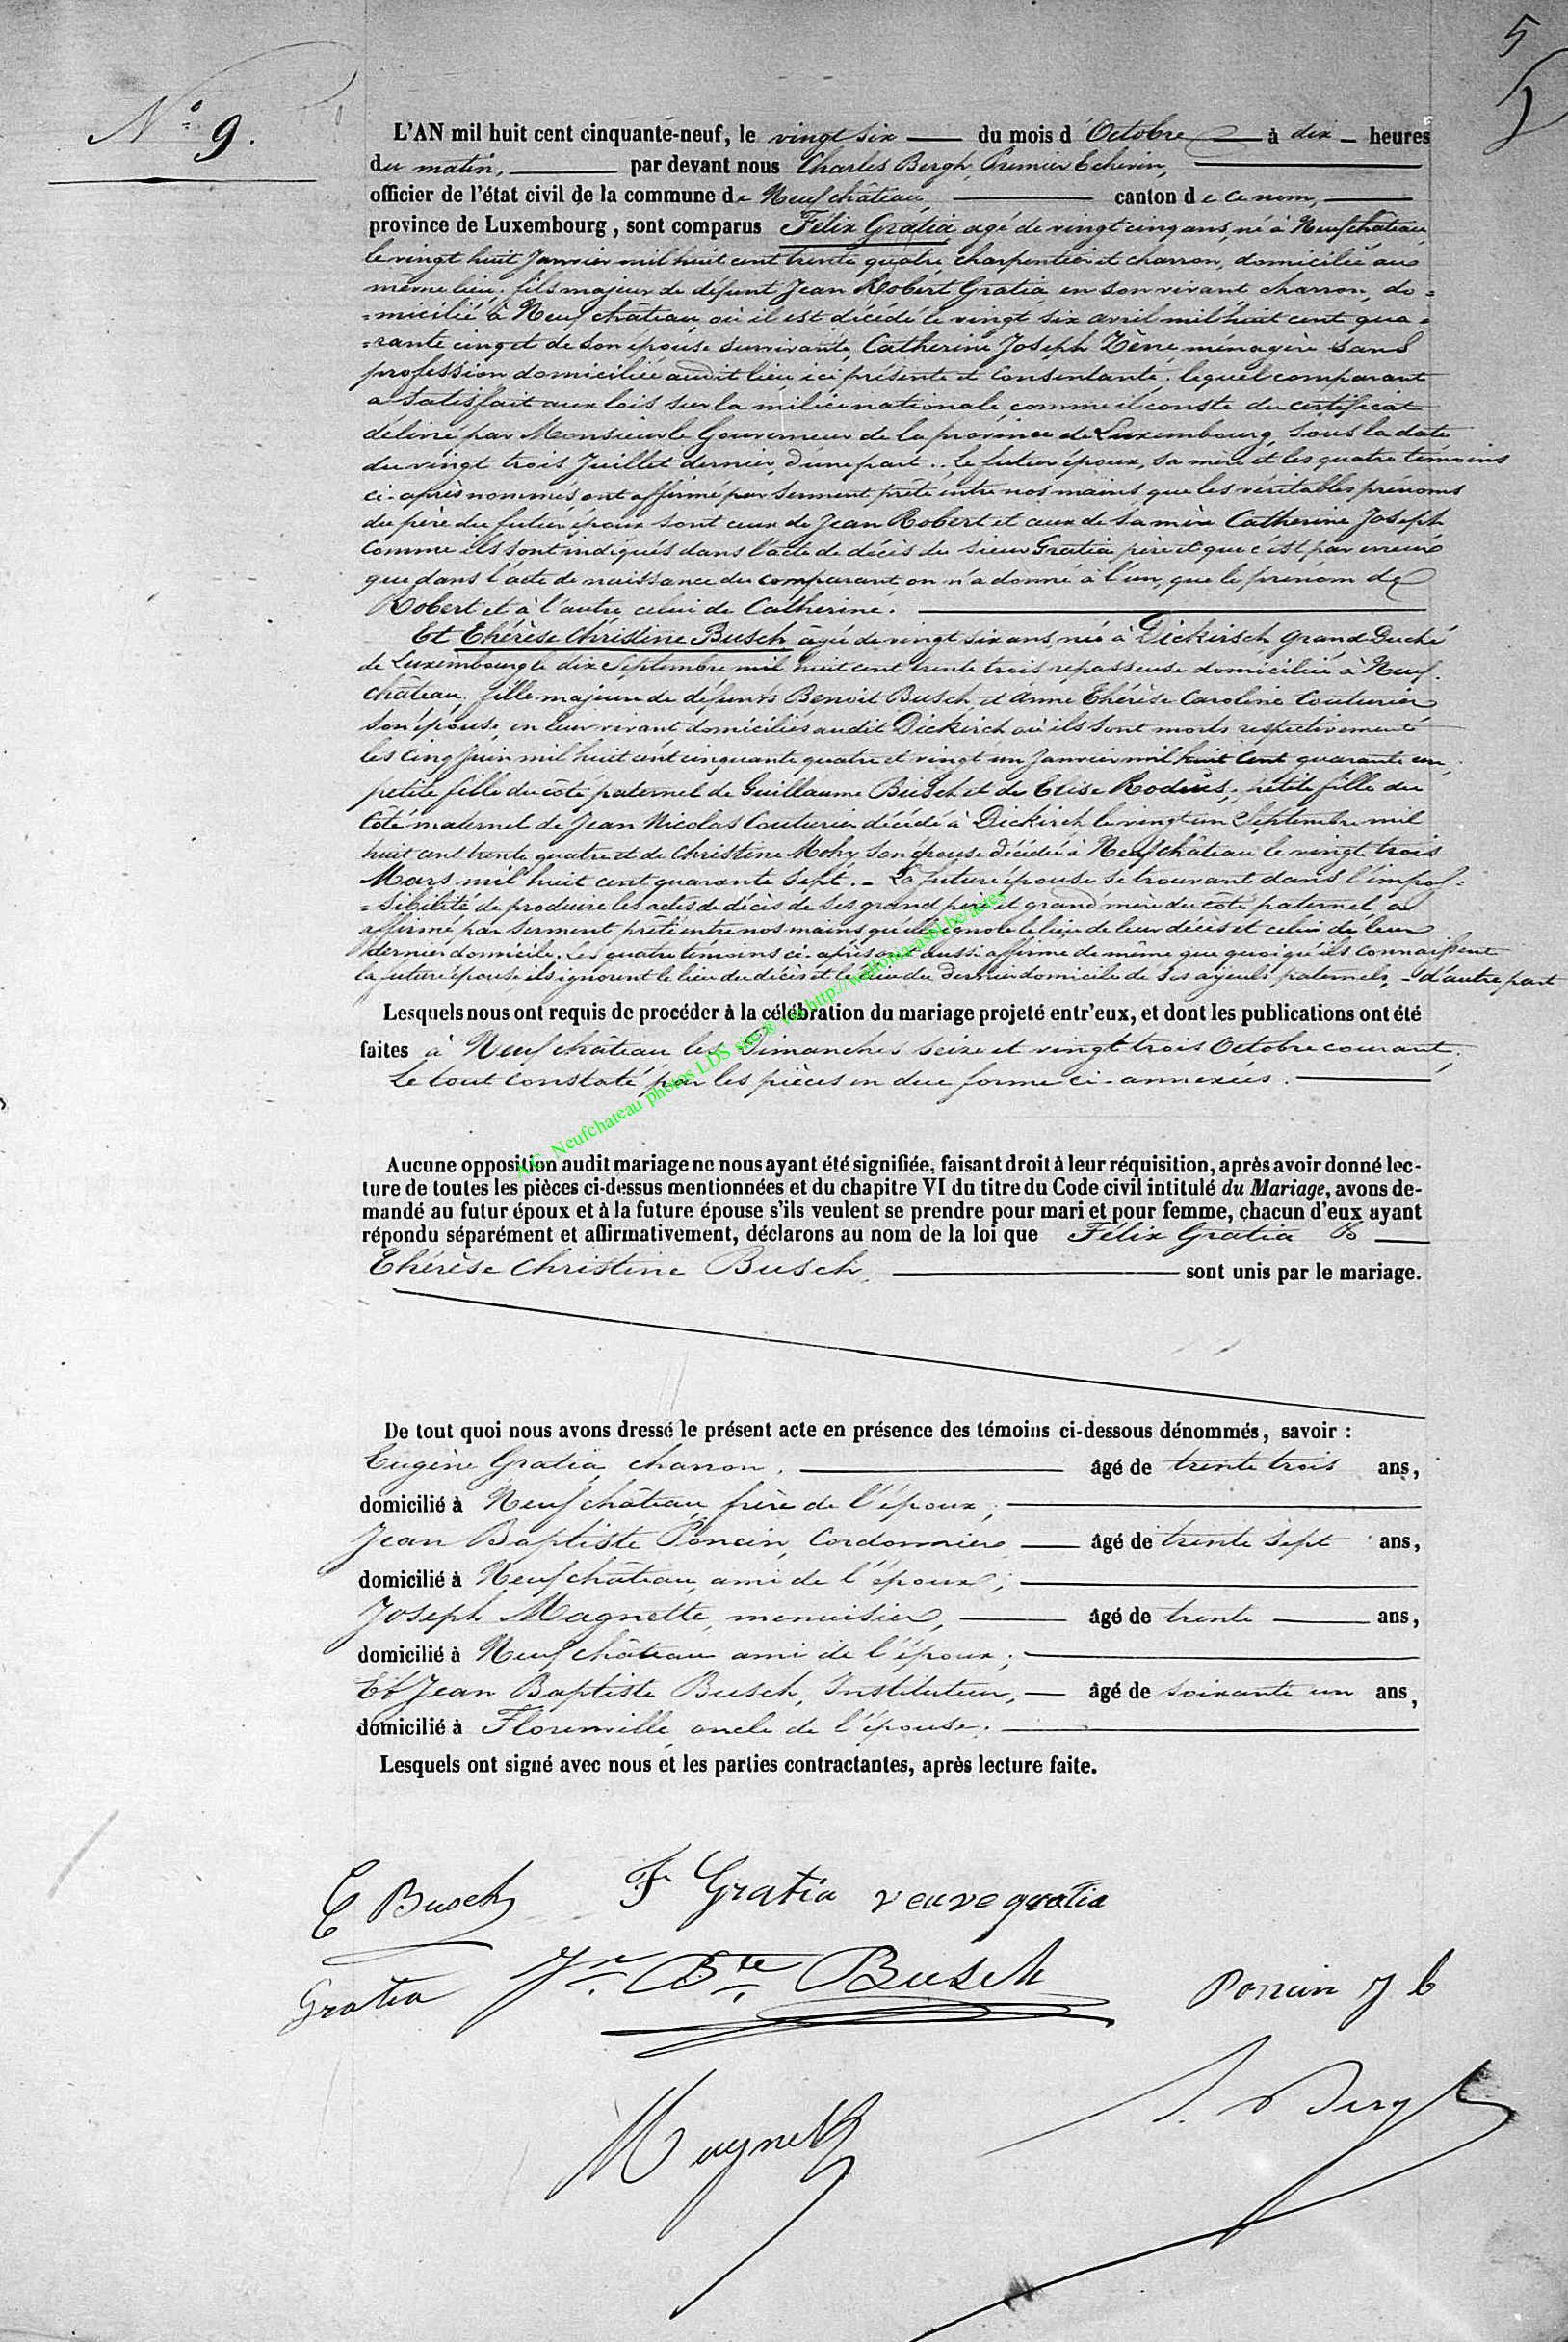 5
5
N° 9.
L'AN mil huit cent cinquante-neuf, le vingt six du mois d'Octobre à dix heures
du matin, par devant nous Charles Bergh, Premier Echevin,
officier de l'état civil de la commune de Neufchâteau, canton de ce nom,
province de Luxembourg, sont comparus Félix Gratia, agé de vingt cinq ans, né à Neufchâteau,
le vingt huit Janvier mil huit cent trente quatre, charpentier et charron, domicilié au
même lieu, fils majeur de défunt Jean Robert Gratia, en son vivant charron, do=
=micilié à Neufchâteau, où il est décédé le vingt six avril mil huit cent qua=
=rante cinq et de son épouse survivante, Catherine Joseph ménagère sans
profession domiciliée audit lieu, ici présente et consentante. lequel comparant
a satisfait aux lois sur la milice nationale, comme il conste du certificat
délivré par Monsieur le Gouverneur de la province de Luxembourg, sous la date
du vingt trois Juillet dernier, d'une part.. Le futur époux, sa mère et les quatre témoins
ci-après nommés ont affirmé par serment prêté entre nos mains que les véritables prénoms
du père du futur époux sont ceux de Jean Robert et ceux de sa mère Catherine Joseph
comme ils sont indiqués dans l'acte de décès du sieur Gratia père et que c'est par erreur
que dans l'acte de naissance du comparant, on n'a donné à l'un, que le prénom de
Robert et à l'autre celui de Catherine.
Et Thérèse Christine Busch, âgée de vingt six ans, née à Dickirsch, Grand Duché
de Luxembourg le dix Septembre mil huit cent trente trois, repasseuse domiciliée à Neuf-
château, fille majeure de défunts Benoit Busch, et Anne Thérèse Caroline Couturier
son épouse, en leur vivant domiciliés audit Dickirch où ils sont morts respectivement
les cinq Juin mil huit cent cinquante quatre et vingt un Janvier mil huit cent quarante un,
petite fille du côté paternel de Guillaume Busch et de Elise Rodius; petite fille du
Côté maternel de Jean Nicolas Couturier décédé à Dickirch le vingt un Septembre mil
huit cent trente quatre et de Christine Mohy son épouse décédée à Neufchâteau le vingt trois
Mars mil huit cent quarante sept.- La future épouse se trouvant dans l'impos=
=sibilité de produire les actes de décès de ses grand père et grand mère du côté paternel, a
affirmé par serment prêté entre nos mains qu'elle ignore le lieu de leur décès et celui de leur
dernier domicile. Les quatre témoins ci-après ont aussi affirmé de même que quoiqu'ils connaissent
la future épouse ils ignorent le lieu du décès et le lieu du dernier domicile de ses ayeuls paternels, d'autre part
Lesquels nous ont requis de procéder à la célébration du mariage projeté entr'eux, et dont les publications ont été
faites à Neufchâteau les Dimanches seize et vingt trois Octobre courant.
Le tout constaté par les pièces en due forme ci-annexées.
A.C. Neufchateau photos LDS site http://wallonia-asbl.be/actes
Aucune opposition audit mariage ne nous ayant été signifiée, faisant droit à leur réquisition, après avoir donné lec-
ture de toutes les pièces ci-dessus mentionnées et du chapitre VI du titre du Code civil intitulé du Mariage, avons de-
mandé au futur époux et à la future épouse s'ils veulent se prendre pour mari et pour femme, chacun d'eux ayant
répondu séparément et affirmativement, déclarons au nom de la loi que Félix Gratia &
Thérèse Christine Busch, sont unis par le mariage.
De tout quoi nous avons dressé le présent acte en présence des témoins ci-dessous dénommés, savoir :
Eugène Gratia, charron, âgé de trente trois ans,
domicilié à Neufchâteau, frère de l'époux;
Jean Baptiste Poncin, Cordonnier âgé de trente sept ans,
domicilié à Neufchâteau, ami de l'époux;
Joseph Magnette, menuisier, âgé de trente ans,
domicilié à Neufchâteau ami de l'époux;
Et Jean Baptiste Busch, Instituteur, âgé de soixante un ans,
domicilié à Florenville, oncle de l'épouse.
Lesquels ont signé avec nous et les parties contractantes, après lecture faite.
Busch F Gratia veuve gratia
Gratia Jn Bte Busch Poncin J b
Magnette Bergh